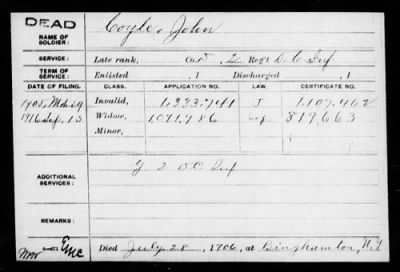 DEAD
NAME OF SOLDIER: Coyle, John
SERVICE: Late rank, Co. , 2 Reg't D. C. Inf
TERM OF SERVICE: Enlisted , 1 Discharged , 1
DATE OF FILING. CLASS. APPLICATION NO. LAW. CERTIFICATE NO.
1905, Mch 29 Invalid, 1,333,741 J 1,107,462
1916 Sep. 13 Widow, 1,091,786 817,663
Minor,
ADDITIONAL SERVICES: G 2 D C Inf
REMARKS:
EMC
Died July 28, 1906, at Binghamton, N.Y.